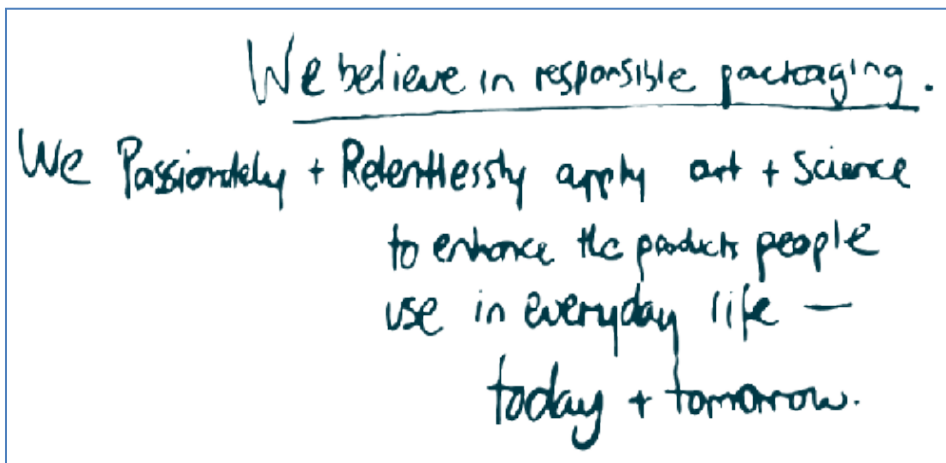 We believe in responsible packaging.
We Passionately + Relentlessly apply art + Science
to enhance the products people
use in everyday life —
today + tomorrow.